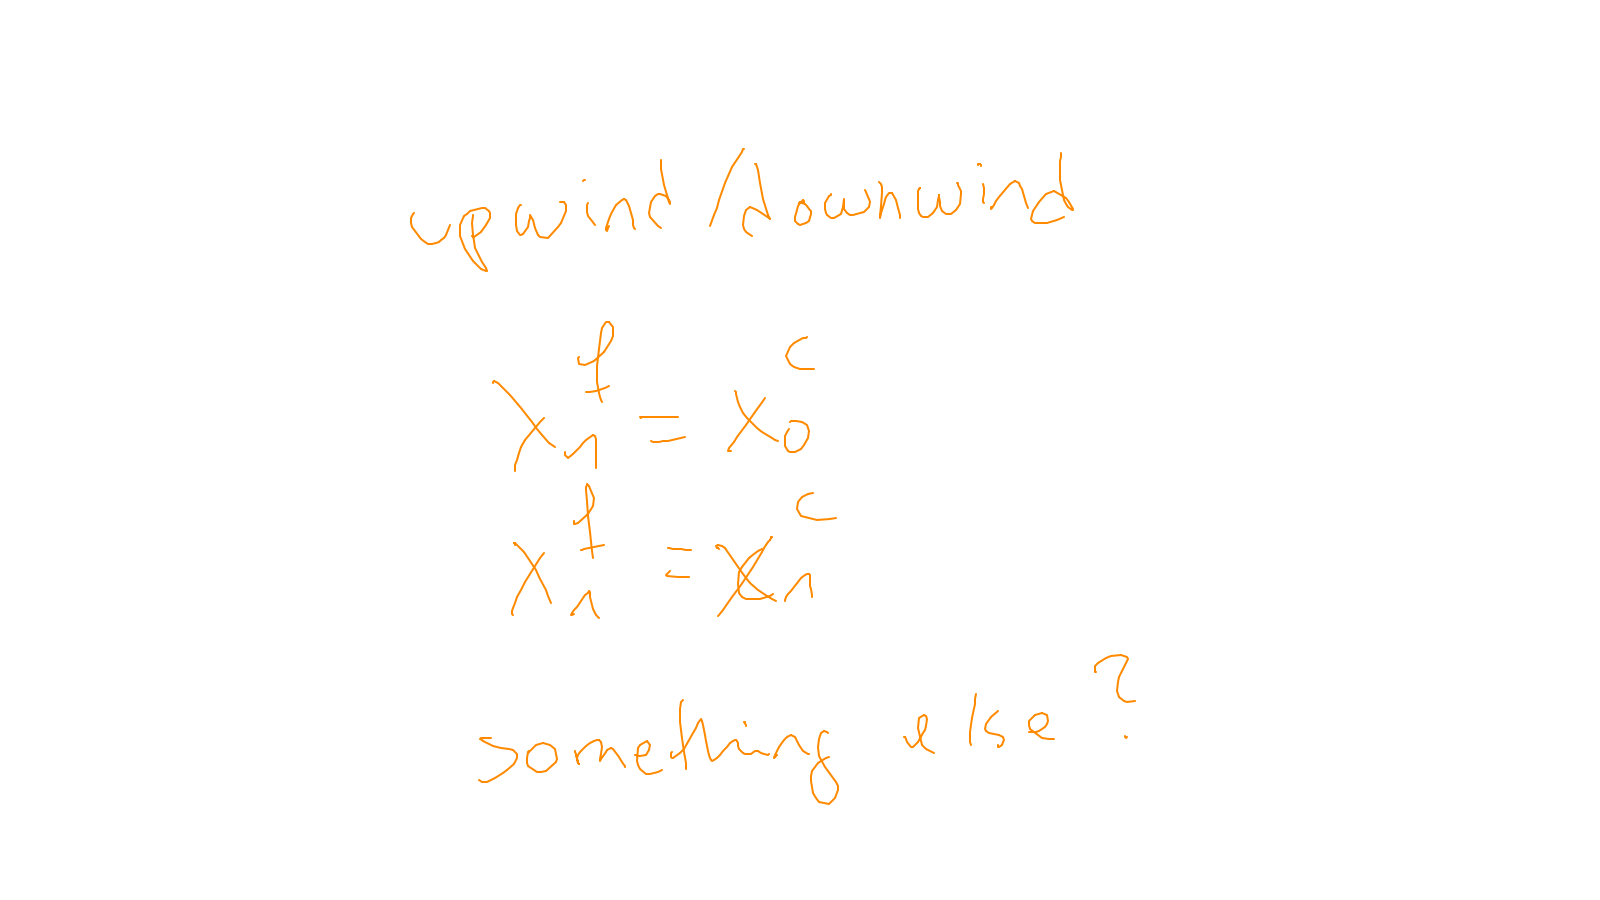 upwind/downwind
x₁ᶠ = x₀ᶜ
x₁ᶠ = x₁ᶜ
something else?